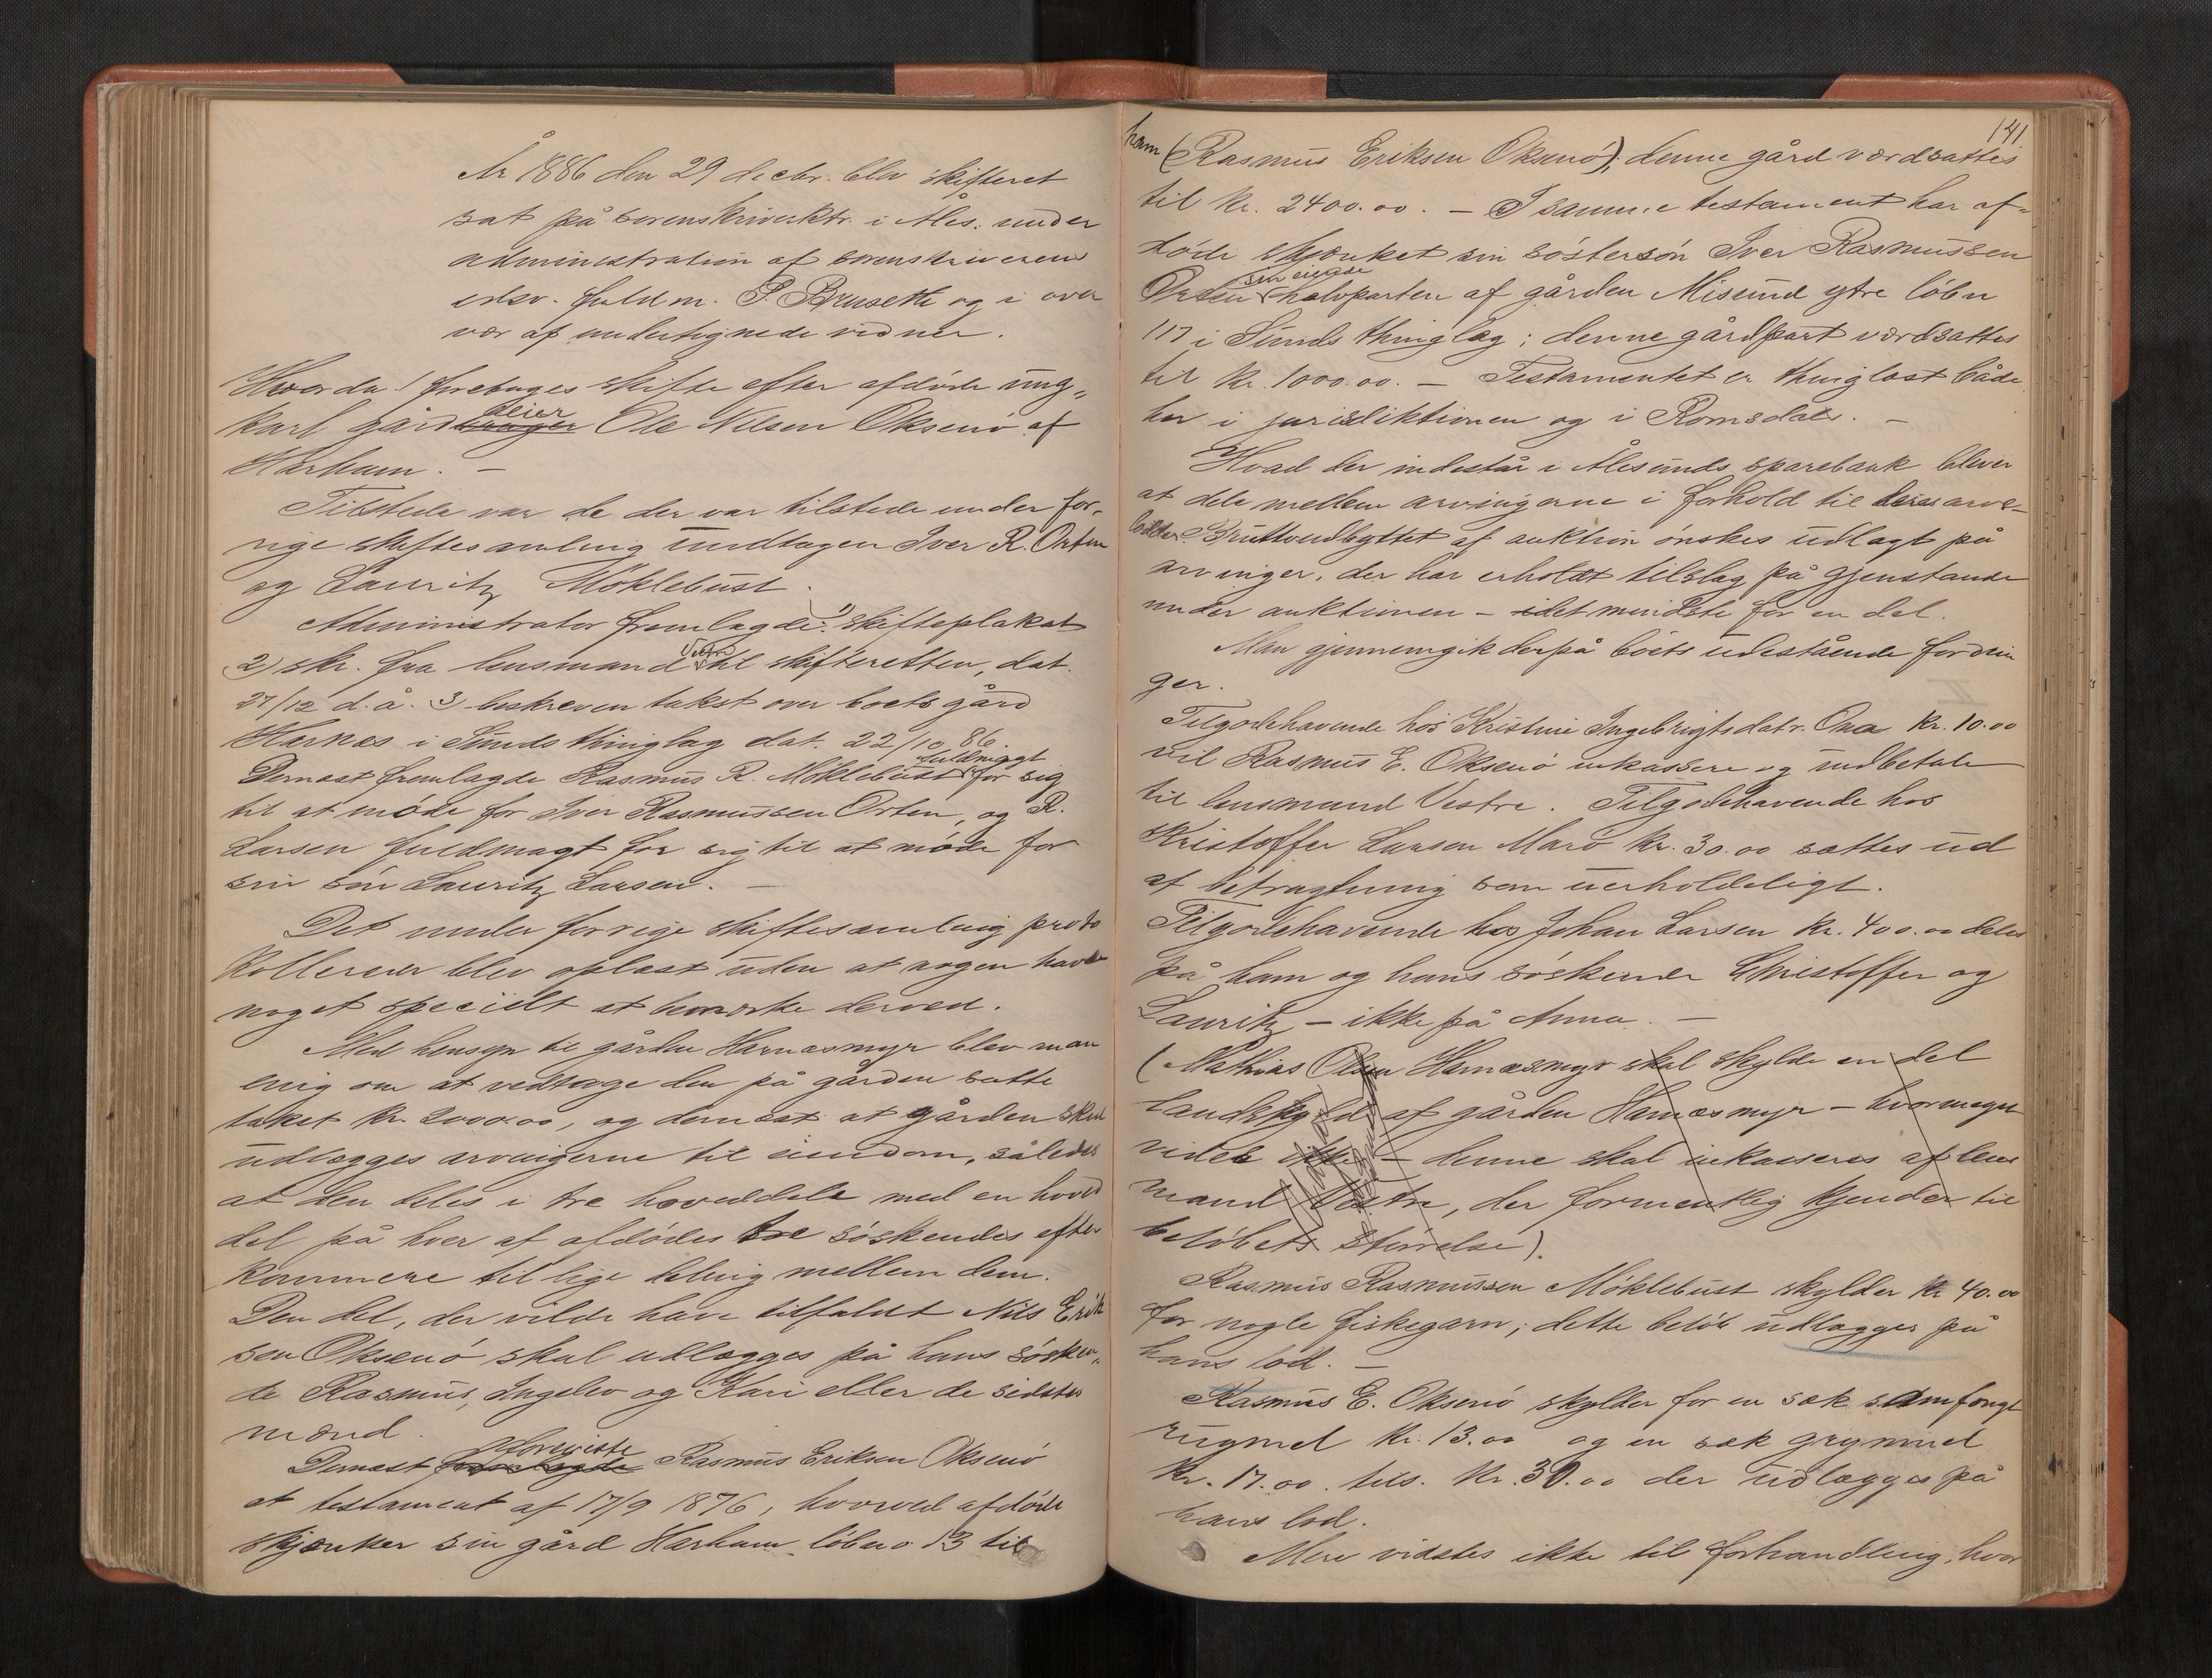 År 1886 den 29 decbr. blev skifteret
sat på sorenskriverktr. i Åles. under
administration af sorenskriverens
edsv. fuldm. P. Brusette og i over
vær af undertegnede vidner.
Hvorda! foretages skifte efter afdöde ung-
karl gårdbruger eier Ole Nilsen Oksenö af
Harham. —
Tilstede var de der var tilstede under for-
rige skiftesamling undtagen Iver R. Orten
og Lauritz Möklebust.
Administrator fremlagde: 1) skifteplakat
2) skr. fra lensmand Vestre til skifteretten, dat.
27/12 d.å. 3 beskreven takst over boets gård
Hernæs i Sunds thinglag dat. 22/10 86.
Dernæst fremlagde Rasmus R. Möklebust fuldmagt for sig
til at möde for Iver Rasmussen Orten, og R.
Larsen fuldmagt for sig til at möde for
sin sön Lauritz Larsen. —
Det under forrige skiftesamling proto
kollerede blev oplæst uden at nogen havde
noget specielt at bemærke derved.
Med hensyn til gården Harnæsmyr blev man
enig om at vedtage den på gården satte
takst kr. 2000.00, og dernæst at gården skal
udlægges arvingerne til eiendom, således
at den deles i tre hoveddele med en hoved
del på hver af afdödes tre söskendes efter
kommere til lige deling mellem dem.
Den del, der vilde have tilfaldt Nils Erik
sen Oksenö skal udlægges på hans sösken-
de Rasmus, Ingelev og Kari eller de sidstes
mænd.
Dernæst fremlagde foreviste Rasmus Eriksen Oksenö
et testament af 17/9 1876, hvorved afdöde
skjænker sin gård Harham löbno 13 til
141
ham (Rasmus Eriksen Oksenö); denne gård værdsattes
til kr. 2400.00. — I samme testament har af-
döde skjænket sin söstersön Iver Rasmussen
Orten sin eiende halvparten af gården Misund ytre löbn
117 i Sunds thinglag; denne gårdpart værdsattes
til kr. 1000.00. — Testamentet er thinglæst både
her i jurisdiktionen og i Romsdals. —
Hvad der indestår i Ålesunds sparebank bliver
at dele mellem arvingerne i forhold til deres arve-
lodder. Bruttoudbyttet af auktion önskes udlagt på
arvinger, der har erholdt tilslag på gjenstande
under auktionen — idetmindste for en del.
Man gjennemgik derpå boets udestående fordrin
ger.
Tilgodehavende hos Kristine Ingebrigtsdatr. Ona kr. 10.00
vil Rasmus E. Oksenö inkassere og indbetale
til lensmand Vestre. Tilgodehavende hos
Kristoffer Larsen Marö kr. 30.00 sættes ud
af betragtning som uerholdeligt.
Tilgodehavende hos Johan Larsen kr. 400.00 deles
på ham og hans söskende Christoffer og
Lauritz — ikke på Anna. —
(Mathias Olsen Harnæsmyr skal skylde en del
landskyld af gården Harnæsmyr — hvormeget
vides ikke — denne skal inkasseres af lens
mand Vestre, der formentlig kjender til
belöbets störrelse).
Rasmus Rasmussen Möklebust skylder kr 40.00
for nogle fiskegarn; dette belöb udlægges på
hans lod. —
Rasmus E. Oksenö skylder for en sæk
rugmel kr. 13.00 og en sæk grynmel
kr. 17.00. tils. kr. 30.00 der udlægges på
hans lod.
Mere vidstes ikke til forhandling, hvor